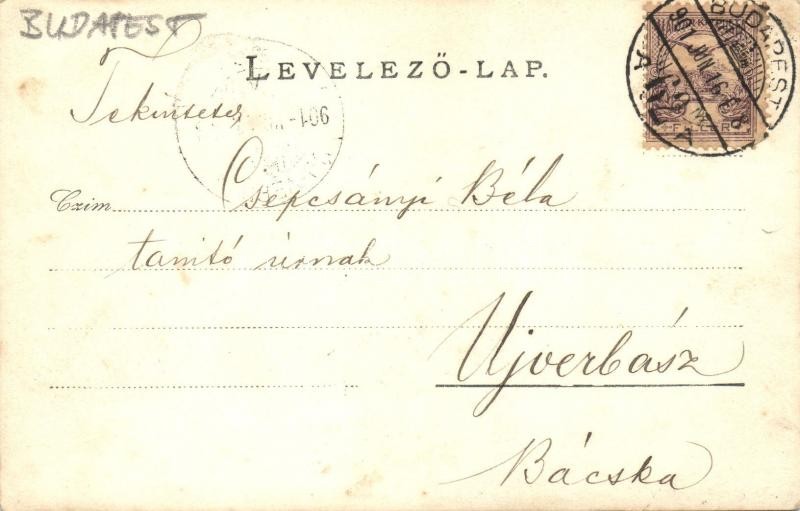 BUDAPEST
LEVELEZŐ-LAP.
Tekintetes
Czim Csepcsányi Béla
tanító úrnak
Ujverbász
Bácska
BUDAPEST
901 JUN 16
FILLÉR
901